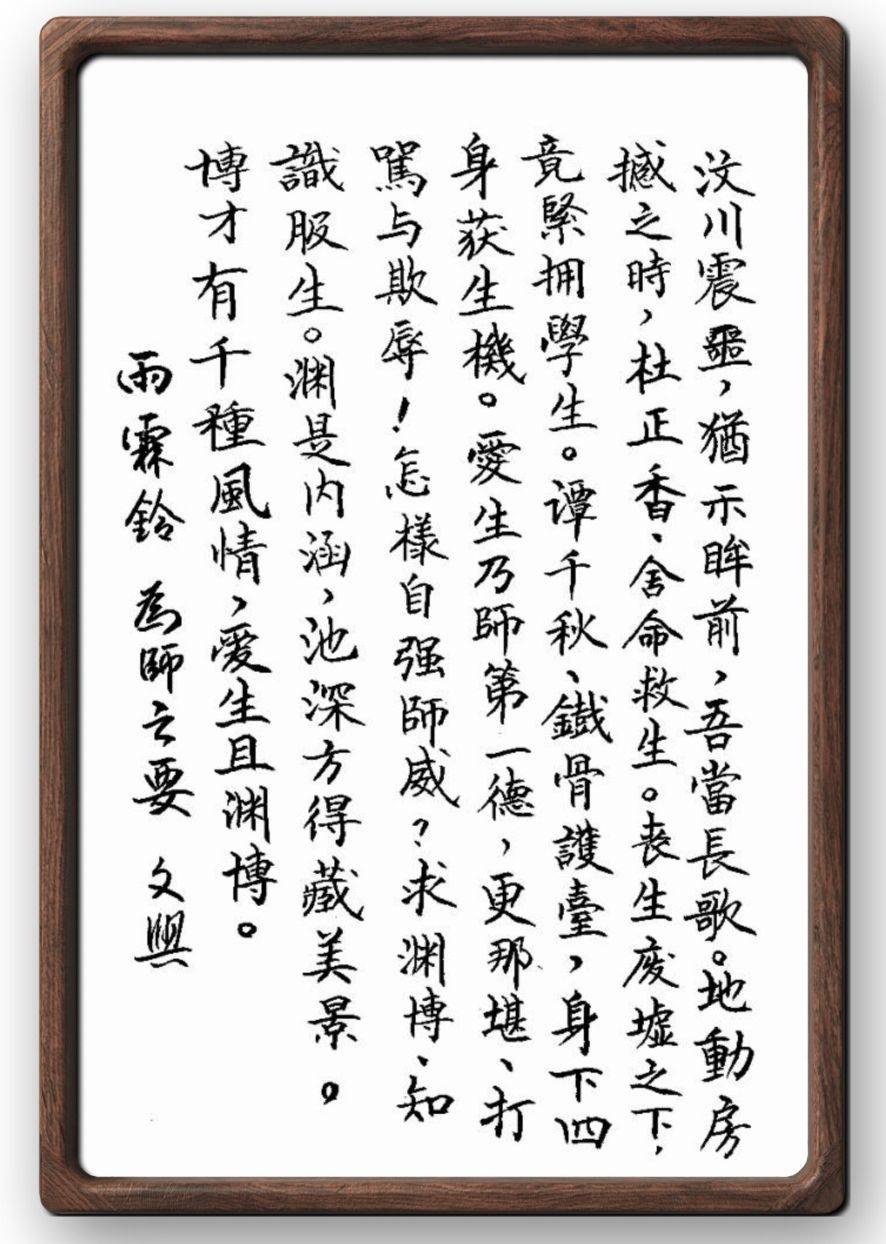 汶川震噩，猶示眸前，吾當長歌。地動房
撼之時，杜正香、舍命救生。丧生废墟之下，
竟緊拥學生。谭千秋、鐵骨護臺，身下四
身获生機。愛生乃師第一德，更那堪、打
駡与欺辱！怎樣自强師威？求渊博、知
識服生。渊是内涵，池深方得藏美景。
博才有千種風情，愛生且渊博。
雨霖鈴 為師之要 文興